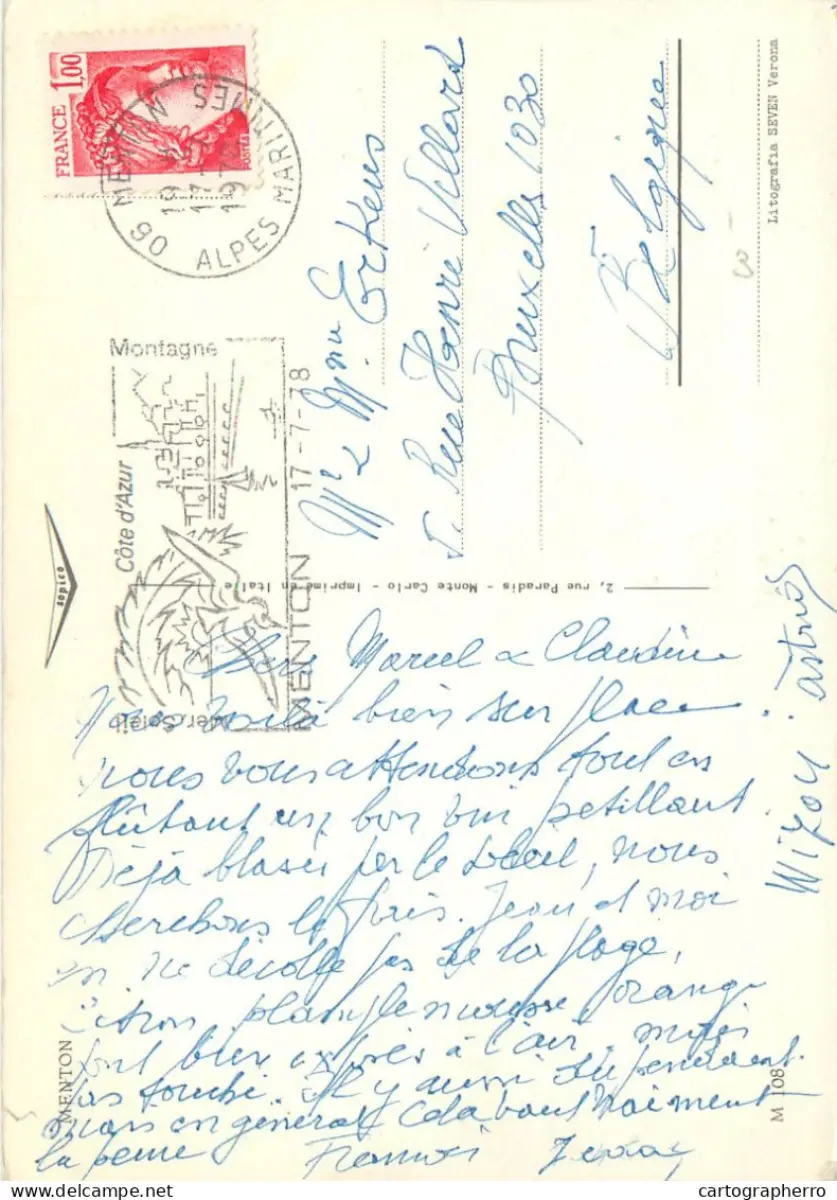 FRANCE 1,00
POSTES
06 MENTON
19 H
17-7
1978
ALPES MARITIMES
Montagne
Côte d'Azur
Mer Soleil
MENTON 17-7-78
sopico
2, rue Paradis - Monte Carlo - Imprimé en Italie
Litografia SEVEN Verona
MENTON
M 108
Mr & Mme Eckens
5, Rue Henri Villard
Bruxelles 1030
Belgique
Chers Marcel & Claudine
voilà bien sur place
nous vous attendons tout en
flûtant un bon vin petillant.
Déjà blasés par le soleil, nous
cherchons le frais. Jean et moi
on ne décolle pas de la plage,
Citron, pamplemousse, orange
sont bien exposés à l'air, mais
pas touche. Il y aussi du pendant.
mais en général cela vaut vraiment
la peine